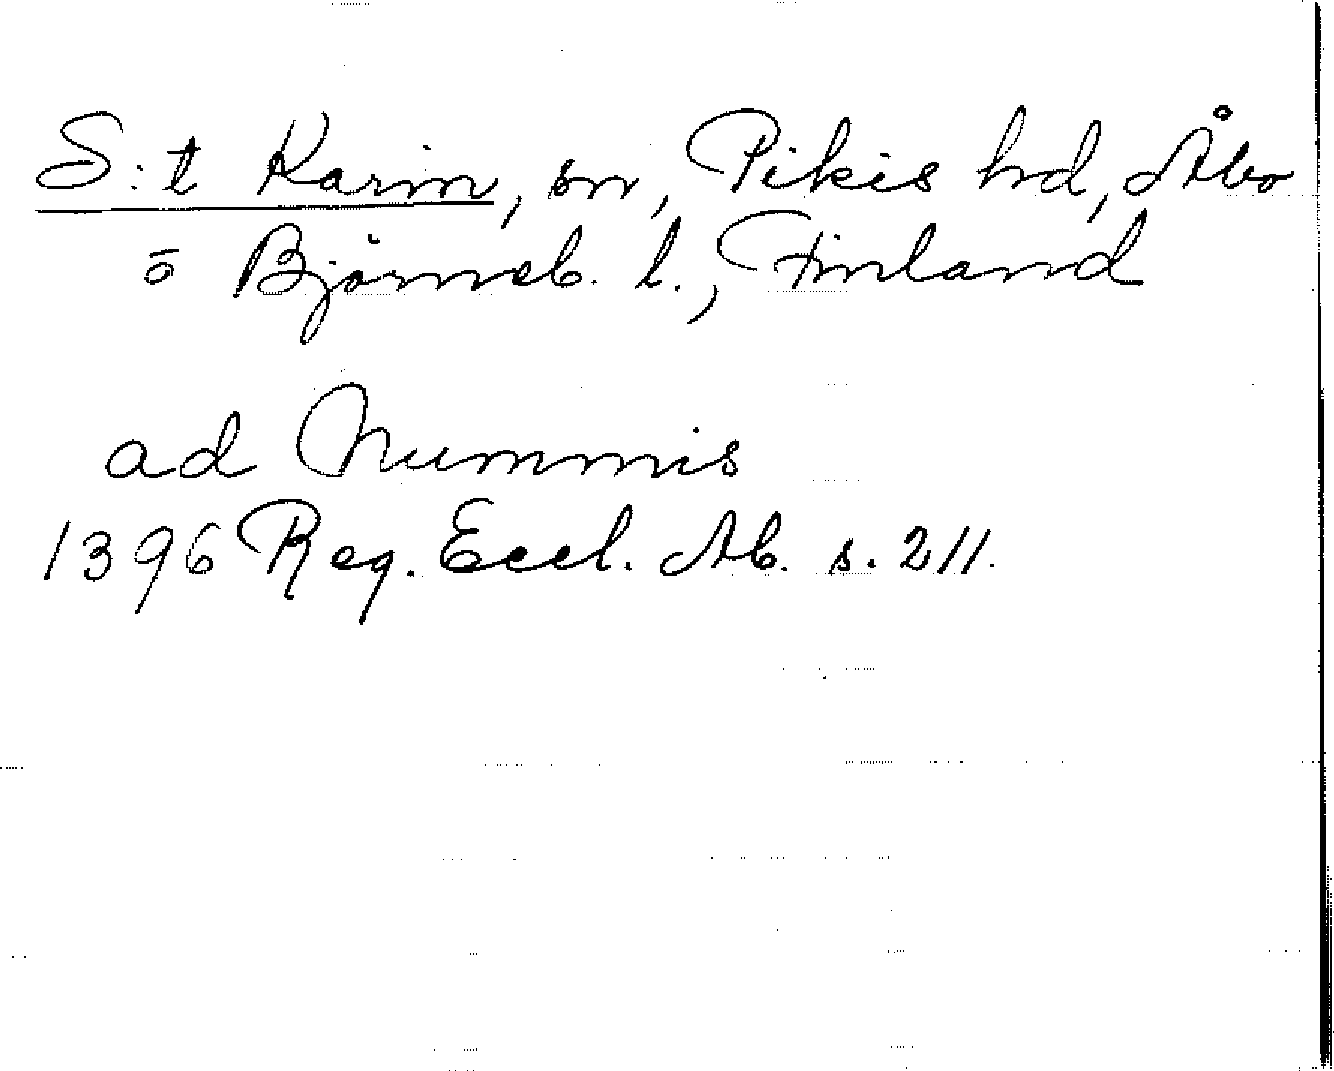 S:t Karin, sn, Pikis hd, Åbo
o Björneb. l., Finland
ad Nummis
1396 Reg. Eccl. Ab. s. 211.